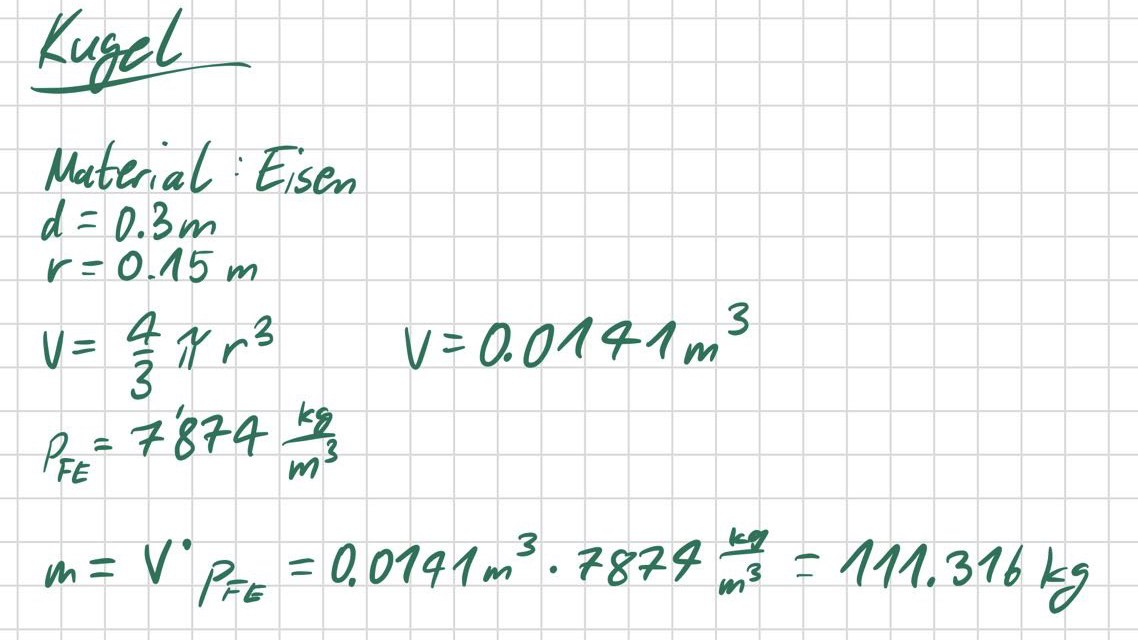 Kugel
Material : Eisen
d = 0.3 m
r = 0.15 m
V = 4/3 π r³ V = 0.0141 m³
ρ_FE = 7'874 kg/m³
m = V · ρ_FE = 0.0141 m³ · 7874 kg/m³ = 111.316 kg